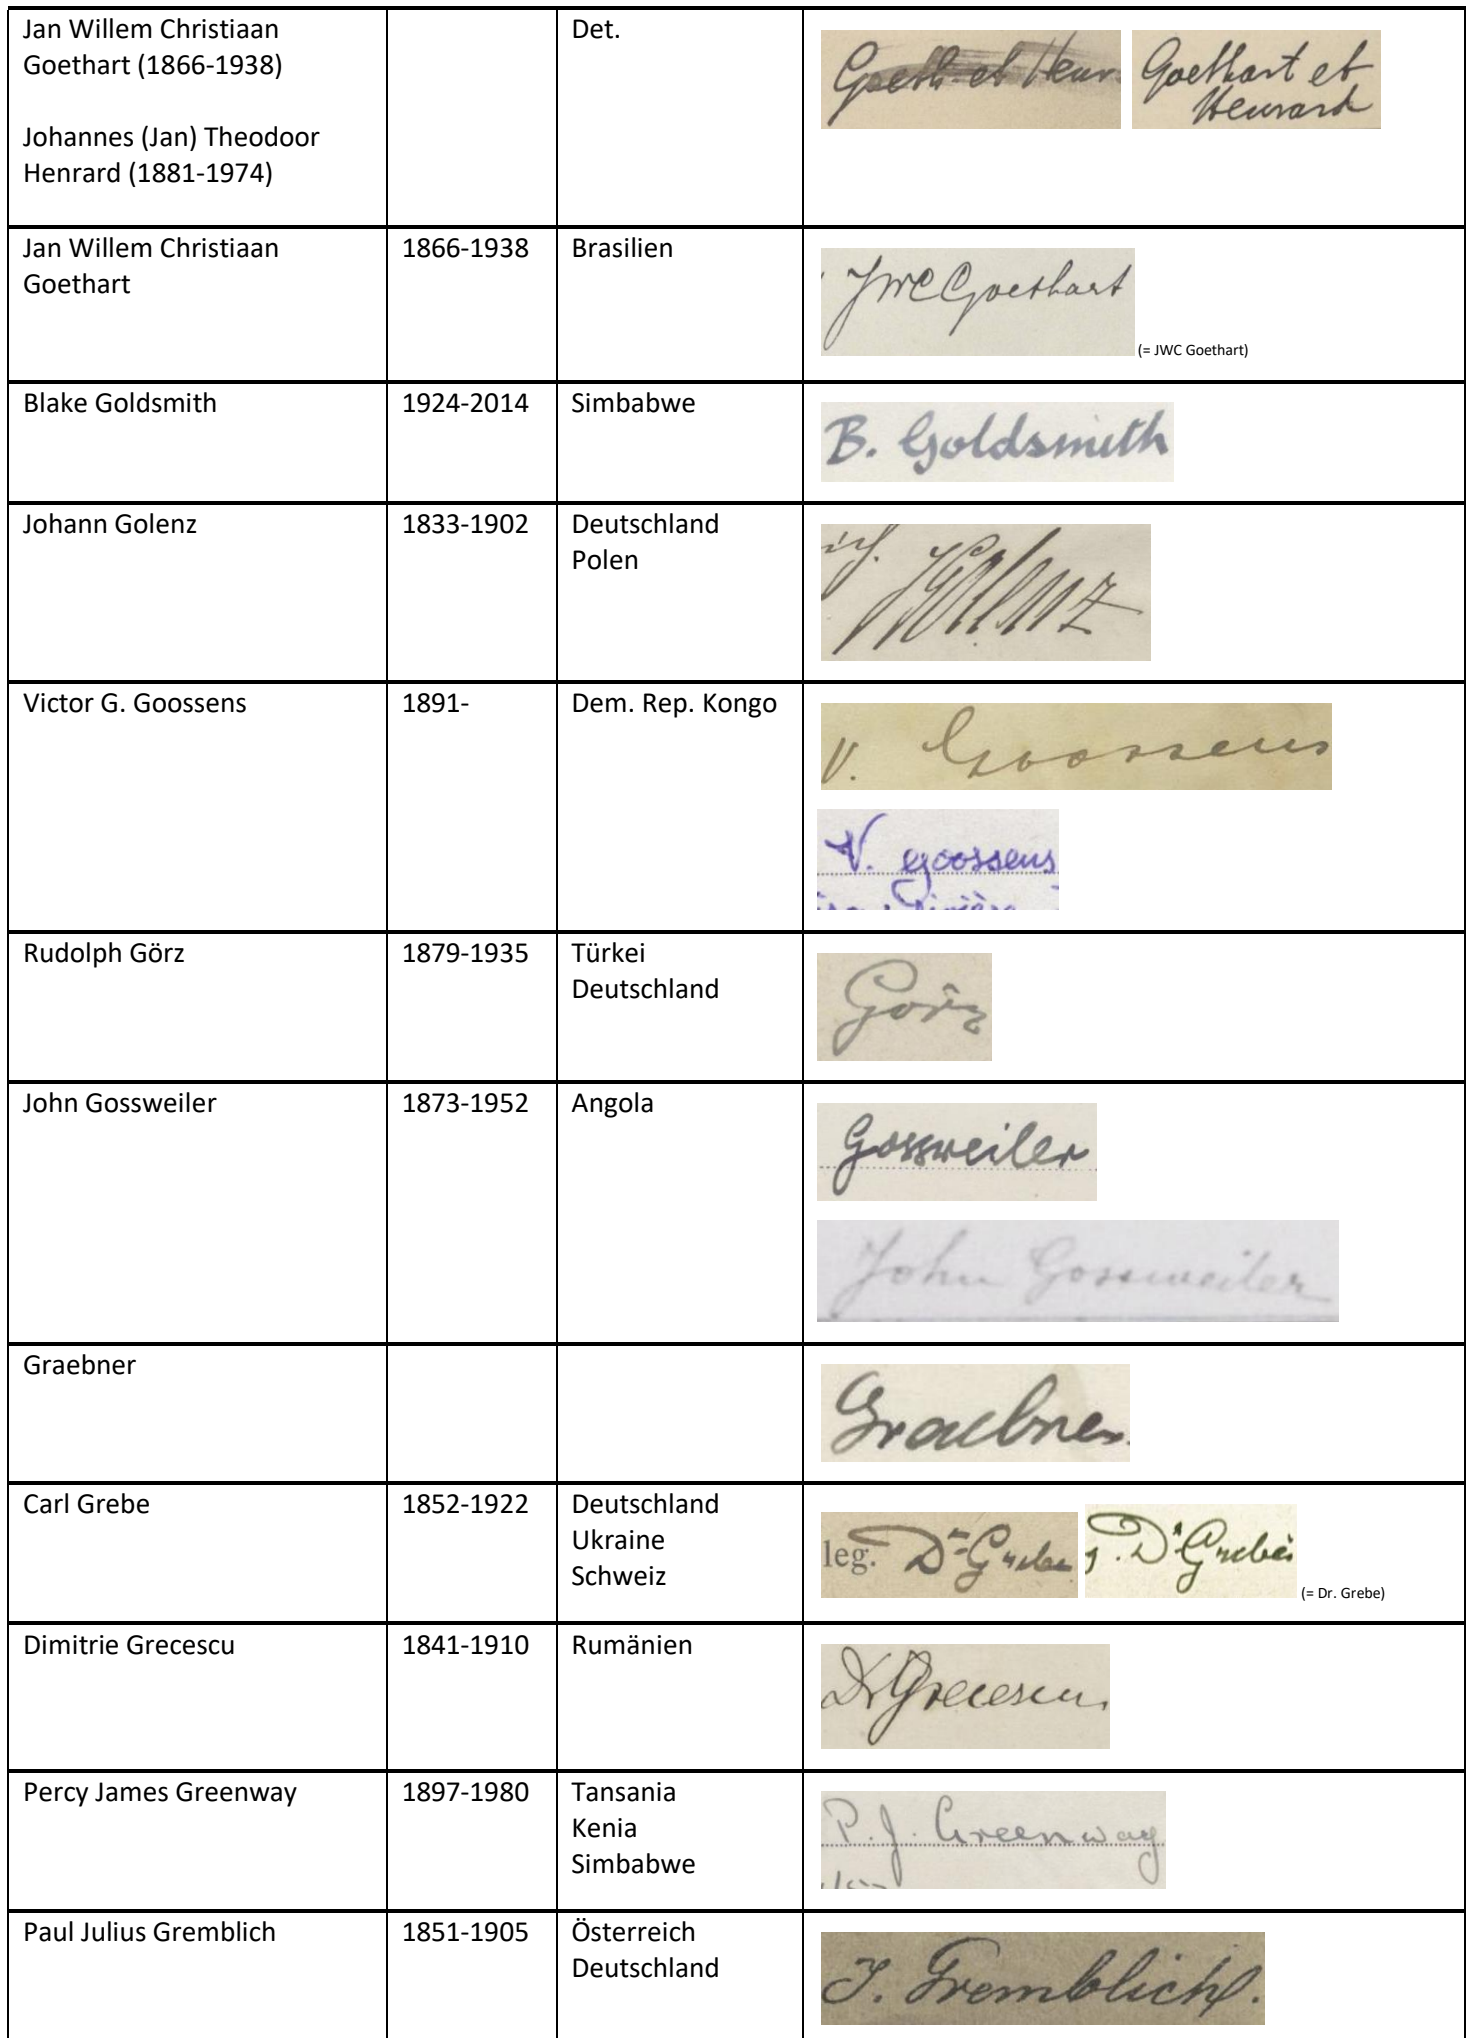 Jan Willem Christiaan
Goethart (1866-1938)
Johannes (Jan) Theodoor
Henrard (1881-1974)
Det.
Goeth. et Henr
Goethart et
Henrard
Jan Willem Christiaan
Goethart
1866-1938
Brasilien
JWC Goethart
(= JWC Goethart)
Blake Goldsmith
1924-2014
Simbabwe
B. Goldsmith
Johann Golenz
1833-1902
Deutschland
Polen
Golenz
Victor G. Goossens
1891-
Dem. Rep. Kongo
V. Goossens
V. goossens
Rudolph Görz
1879-1935
Türkei
Deutschland
Görz
John Gossweiler
1873-1952
Angola
Gossweiler
John Gossweiler
Graebner
Graebner
Carl Grebe
1852-1922
Deutschland
Ukraine
Schweiz
leg. Dr Grebe
Dr Grebe
(= Dr. Grebe)
Dimitrie Grecescu
1841-1910
Rumänien
Dr Grecescu
Percy James Greenway
1897-1980
Tansania
Kenia
Simbabwe
P. J. Greenway
Paul Julius Gremblich
1851-1905
Österreich
Deutschland
J. Gremblich.